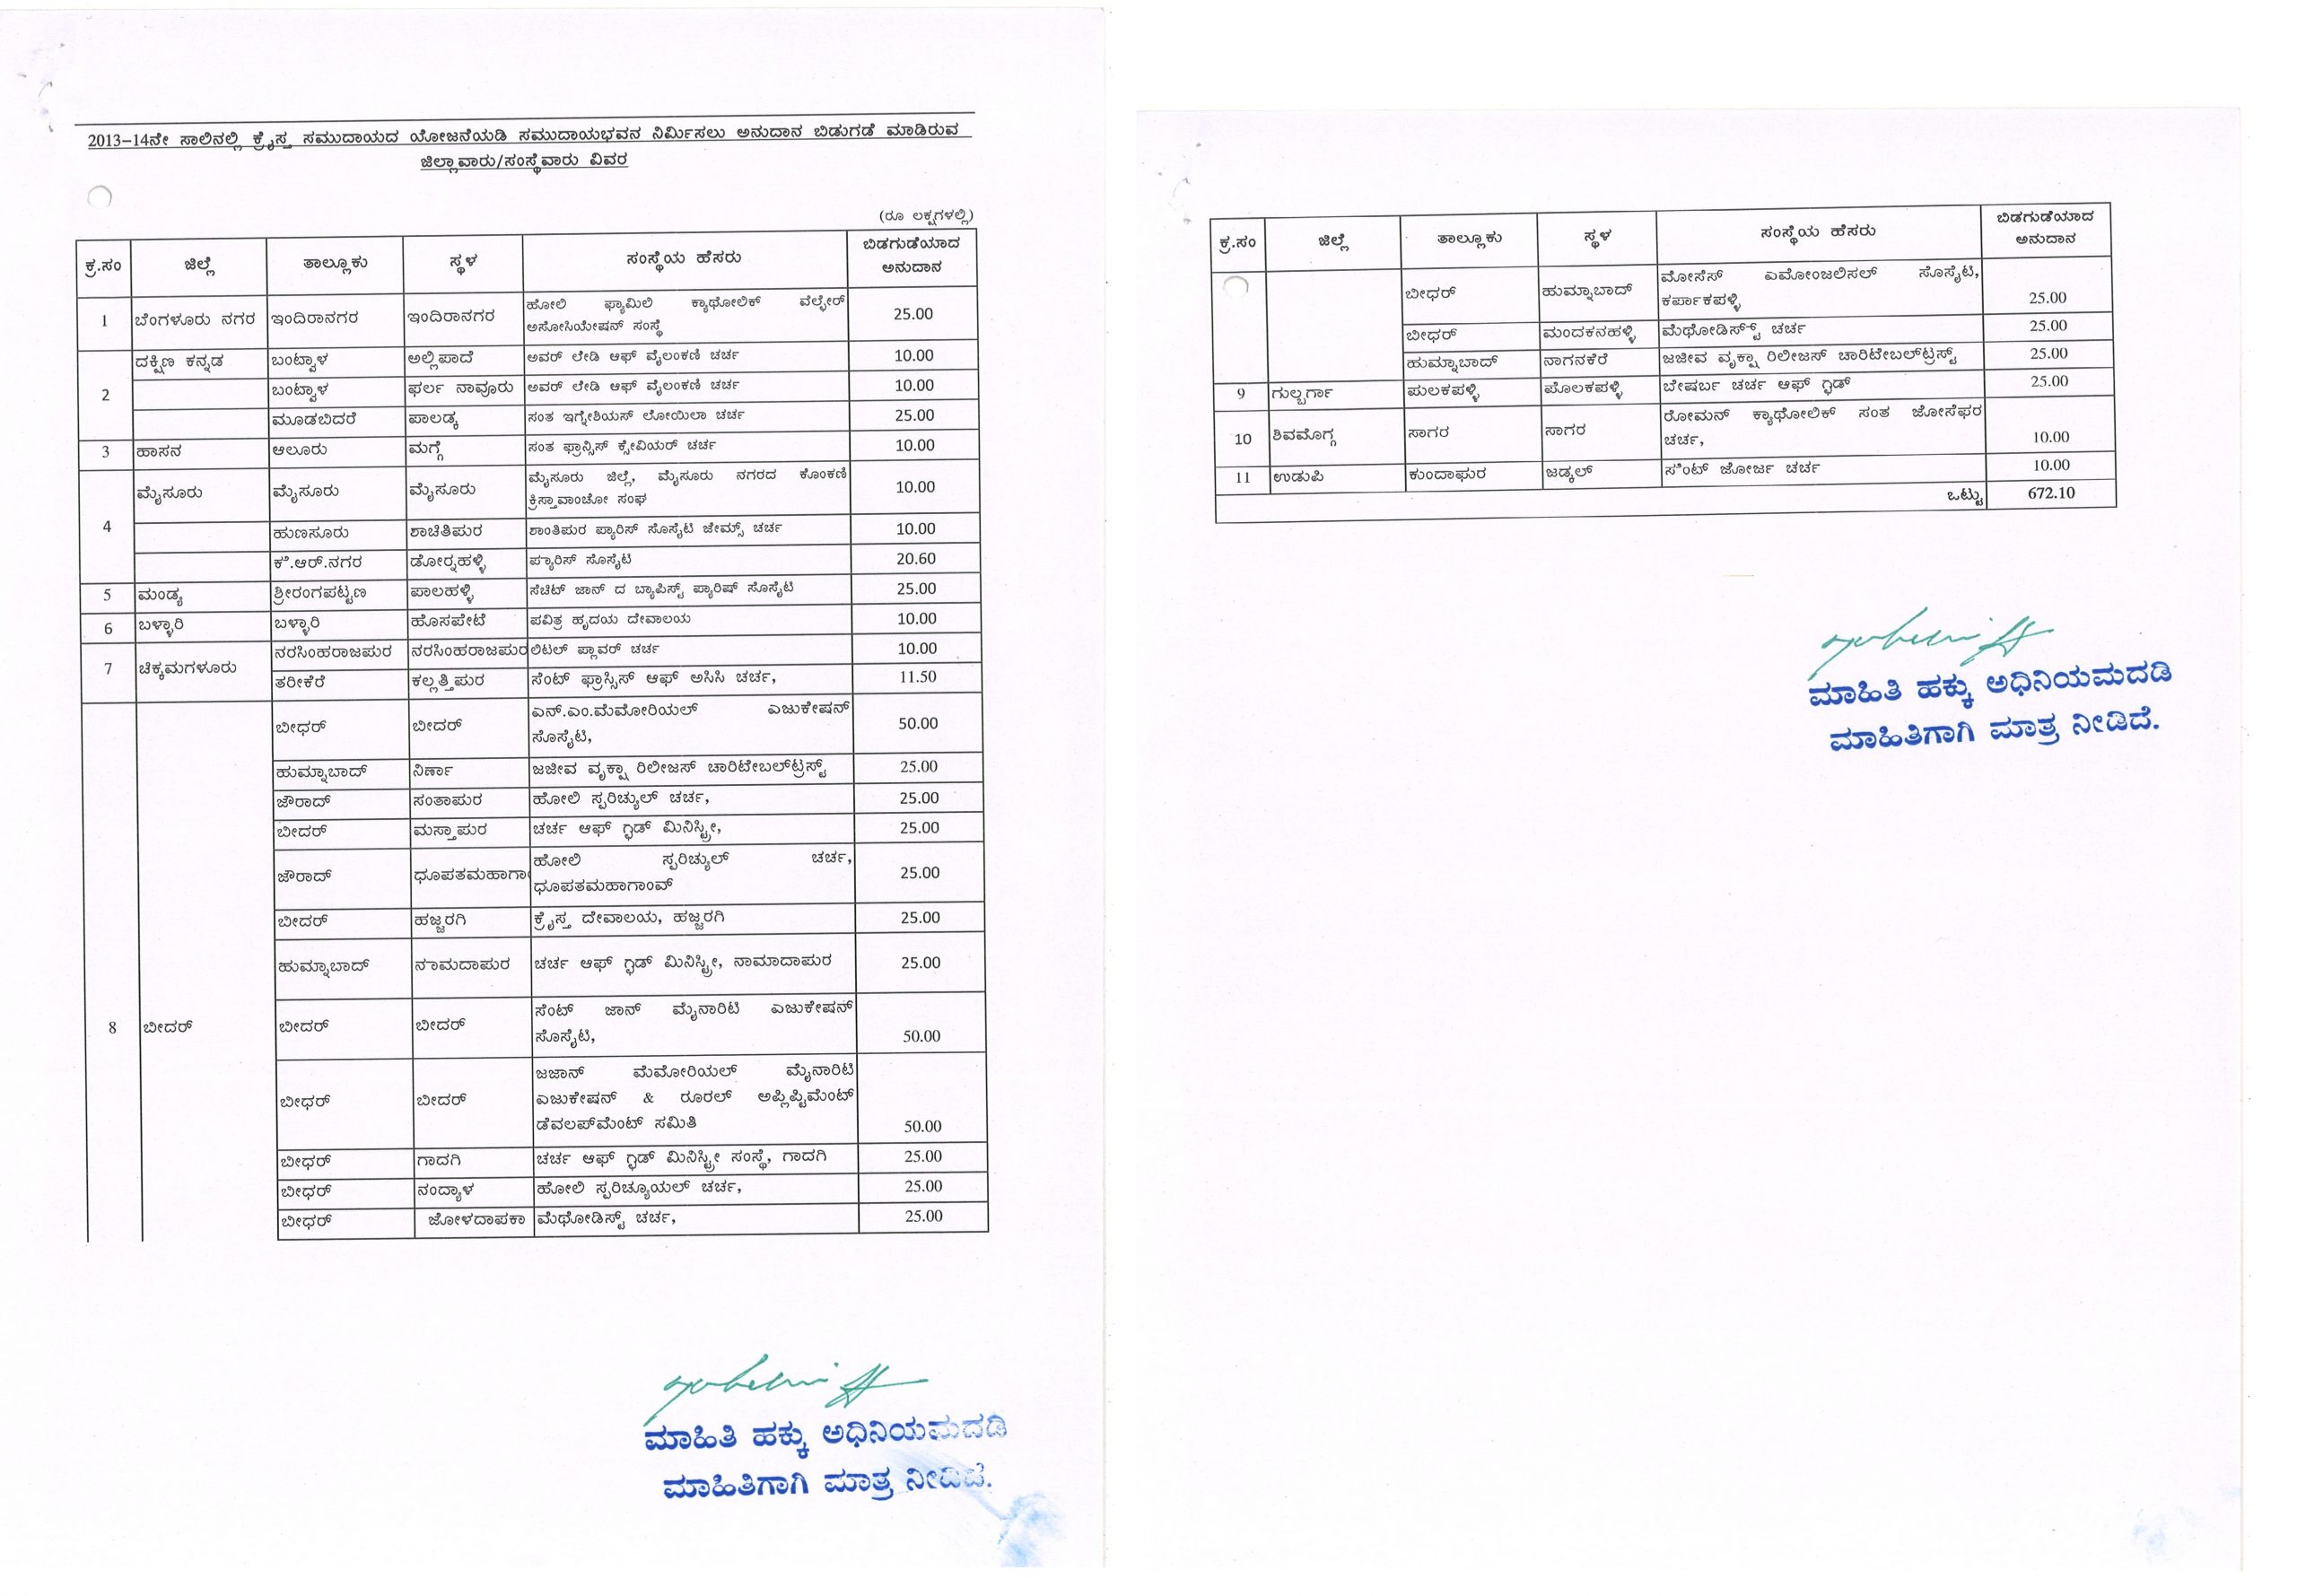 2013-14ನೇ ಸಾಲಿನಲ್ಲಿ ಕ್ರೈಸ್ತ ಸಮುದಾಯದ ಯೋಜನೆಯಡಿ ಸಮುದಾಯಭವನ ನಿರ್ಮಿಸಲು ಅನುದಾನ ಬಿಡುಗಡೆ ಮಾಡಿರುವ
ಜಿಲ್ಲಾವಾರು/ಸಂಸ್ಥೆವಾರು ವಿವರ
(ರೂ ಲಕ್ಷಗಳಲ್ಲಿ)
ಕ್ರ.ಸಂ ಜಿಲ್ಲೆ ತಾಲ್ಲೂಕು ಸ್ಥಳ ಸಂಸ್ಥೆಯ ಹೆಸರು ಬಿಡಗುಡೆಯಾದ
ಅನುದಾನ
1 ಬೆಂಗಳೂರು ನಗರ ಇಂದಿರಾನಗರ ಇಂದಿರಾನಗರ ಹೋಲಿ ಫ್ಯಾಮಿಲಿ ಕ್ಯಾಥೋಲಿಕ್ ವೆಲ್ಫೇರ್
ಅಸೋಸಿಯೇಷನ್ ಸಂಸ್ಥೆ 25.00
2 ದಕ್ಷಿಣ ಕನ್ನಡ ಬಂಟ್ವಾಳ ಅಲ್ಲಿಪಾದೆ ಅವರ್ ಲೇಡಿ ಆಫ್ ವೈಲಂಕಣಿ ಚರ್ಚ 10.00
ಬಂಟ್ವಾಳ ಫರ್ಲ ನಾವೂರು ಅವರ್ ಲೇಡಿ ಆಫ್ ವೈಲಂಕಣಿ ಚರ್ಚ 10.00
ಮೂಡಬಿದರೆ ಪಾಲಡ್ಕ ಸಂತ ಇಗ್ನೇಶಿಯಸ್ ಲೋಯಿಲಾ ಚರ್ಚ 25.00
3 ಹಾಸನ ಆಲೂರು ಮಗ್ಗೆ ಸಂತ ಫ್ರಾನ್ಸಿಸ್ ಕ್ಸೇವಿಯರ್ ಚರ್ಚ 10.00
4 ಮೈಸೂರು ಮೈಸೂರು ಮೈಸೂರು ಮೈಸೂರು ಜಿಲ್ಲೆ, ಮೈಸೂರು ನಗರದ ಕೊಂಕಣಿ
ಕ್ರಿಸ್ತಾವಾಂಚೋ ಸಂಘ 10.00
ಹುಣಸೂರು ಶಾಚೆತಿಪುರ ಶಾಂತಿಪುರ ಪ್ಯಾರಿಸ್ ಸೊಸೈಟಿ ಜೇಮ್ಸ್ ಚರ್ಚ 10.00
ಕೆ.ಆರ್.ನಗರ ಡೋರ‍್ನಹಳ್ಳಿ ಪ್ಯಾರಿಸ್ ಸೊಸೈಟಿ 20.60
5 ಮಂಡ್ಯ ಶ್ರೀರಂಗಪಟ್ಟಣ ಪಾಲಹಳ್ಳಿ ಸೆಚೆಟ್ ಜಾನ್ ದ ಬ್ಯಾಪಿಸ್ಟ್ ಪ್ಯಾರಿಷ್ ಸೊಸೈಟಿ 25.00
6 ಬಳ್ಳಾರಿ ಬಳ್ಳಾರಿ ಹೊಸಪೇಟೆ ಪವಿತ್ರ ಹೃದಯ ದೇವಾಲಯ 10.00
7 ಚಿಕ್ಕಮಗಳೂರು ನರಸಿಂಹರಾಜಪುರ ನರಸಿಂಹರಾಜಪುರ ಲಿಟಲ್ ಪ್ಲಾವರ್ ಚರ್ಚ 10.00
ತರೀಕೆರೆ ಕಲ್ಲತ್ತಿಪುರ ಸೆಂಟ್ ಫ್ರಾನ್ಸಿಸ್ ಆಫ್ ಅಸಿಸಿ ಚರ್ಚ, 11.50
8 ಬೀದರ್ ಬೀಧರ್ ಬೀದರ್ ಎನ್.ಎಂ.ಮೆಮೋರಿಯಲ್ ಎಜುಕೇಷನ್
ಸೊಸೈಟಿ, 50.00
ಹುಮ್ನಾಬಾದ್ ನಿರ್ಣಾ ಜಜೀವ ವೃಕ್ಷಾ ರಿಲೀಜಸ್ ಚಾರಿಟೇಬಲ್‌ಟ್ರಸ್ಟ್ 25.00
ಔರಾದ್ ಸಂತಾಪುರ ಹೋಲಿ ಸ್ಪರಿಚ್ಯುಲ್ ಚರ್ಚ, 25.00
ಬೀದರ್ ಮಸ್ತಾಪುರ ಚರ್ಚ ಆಫ್ ಗ್ಬಡ್ ಮಿನಿಸ್ಟ್ರೀ, 25.00
ಔರಾದ್ ಧೂಪತಮಹಾಗಾಂ ಹೋಲಿ ಸ್ಪರಿಚ್ಯುಲ್ ಚರ್ಚ,
ಧೂಪತಮಹಾಗಾಂವ್ 25.00
ಬೀದರ್ ಹಜ್ಜರಗಿ ಕ್ರೈಸ್ತ ದೇವಾಲಯ, ಹಜ್ಜರಗಿ 25.00
ಹುಮ್ನಾಬಾದ್ ನಾಮದಾಪುರ ಚರ್ಚ ಆಫ್ ಗ್ಬಡ್ ಮಿನಿಸ್ಟ್ರೀ, ನಾಮಾದಾಪುರ 25.00
ಬೀದರ್ ಬೀದರ್ ಸೆಂಟ್ ಜಾನ್ ಮೈನಾರಿಟಿ ಎಜುಕೇಷನ್
ಸೊಸೈಟಿ, 50.00
ಬೀಧರ್ ಬೀದರ್ ಜಜಾನ್ ಮೆಮೋರಿಯಲ್ ಮೈನಾರಿಟಿ
ಎಜುಕೇಷನ್ & ರೂರಲ್ ಅಪ್ಲಿಪ್ಟಿಮೆಂಟ್
ಡೆವಲಪ್‌ಮೆಂಟ್ ಸಮಿತಿ 50.00
ಬೀಧರ್ ಗಾದಗಿ ಚರ್ಚ ಆಫ್ ಗ್ಬಡ್ ಮಿನಿಸ್ಟ್ರೀ ಸಂಸ್ಥೆ, ಗಾದಗಿ 25.00
ಬೀಧರ್ ನಂದ್ಯಾಳ ಹೋಲಿ ಸ್ಪರಿಚ್ಯೂಯಲ್ ಚರ್ಚ, 25.00
ಬೀಧರ್ ಜೋಳದಾಪಕಾ ಮೆಥೋಡಿಸ್ಟ್ ಚರ್ಚ, 25.00
ಮಾಹಿತಿ ಹಕ್ಕು ಅಧಿನಿಯಮದಡಿ
ಮಾಹಿತಿಗಾಗಿ ಮಾತ್ರ ನೀಡಿದೆ.
ಕ್ರ.ಸಂ ಜಿಲ್ಲೆ ತಾಲ್ಲೂಕು ಸ್ಥಳ ಸಂಸ್ಥೆಯ ಹೆಸರು ಬಿಡಗುಡೆಯಾದ
ಅನುದಾನ
ಬೀಧರ್ ಹುಮ್ನಾಬಾದ್ ಮೋಸೆಸ್ ಎಮೋಂಜಲಿಸಲ್ ಸೊಸೈಟಿ,
ಕರ್ಪಾಕಪಳ್ಳಿ 25.00
ಬೀಧರ್ ಮಂದಕನಹಳ್ಳಿ ಮೆಥೋಡಿಸ್ಟ್ ಚರ್ಚ 25.00
ಹುಮ್ನಾಬಾದ್ ನಾಗನಕೆರೆ ಜಜೀವ ವೃಕ್ಷಾ ರಿಲೀಜಸ್ ಚಾರಿಟೇಬಲ್‌ಟ್ರಸ್ಟ್ 25.00
9 ಗುಲ್ಬರ್ಗಾ ಪುಲಕಪಳ್ಳಿ ಪೊಲಕಪಳ್ಳಿ ಬೇಷರ್ಬ ಚರ್ಚ ಆಫ್ ಗ್ಬಡ್ 25.00
10 ಶಿವಮೊಗ್ಗ ಸಾಗರ ಸಾಗರ ರೋಮನ್ ಕ್ಯಾಥೋಲಿಕ್ ಸಂತ ಜೋಸೆಫರ
ಚರ್ಚ, 10.00
11 ಉಡುಪಿ ಕುಂದಾಪುರ ಜಡ್ಕಲ್ ಸೆಂಟ್ ಜೋರ್ಜ ಚರ್ಚ 10.00
ಒಟ್ಟು 672.10
ಮಾಹಿತಿ ಹಕ್ಕು ಅಧಿನಿಯಮದಡಿ
ಮಾಹಿತಿಗಾಗಿ ಮಾತ್ರ ನೀಡಿದೆ.